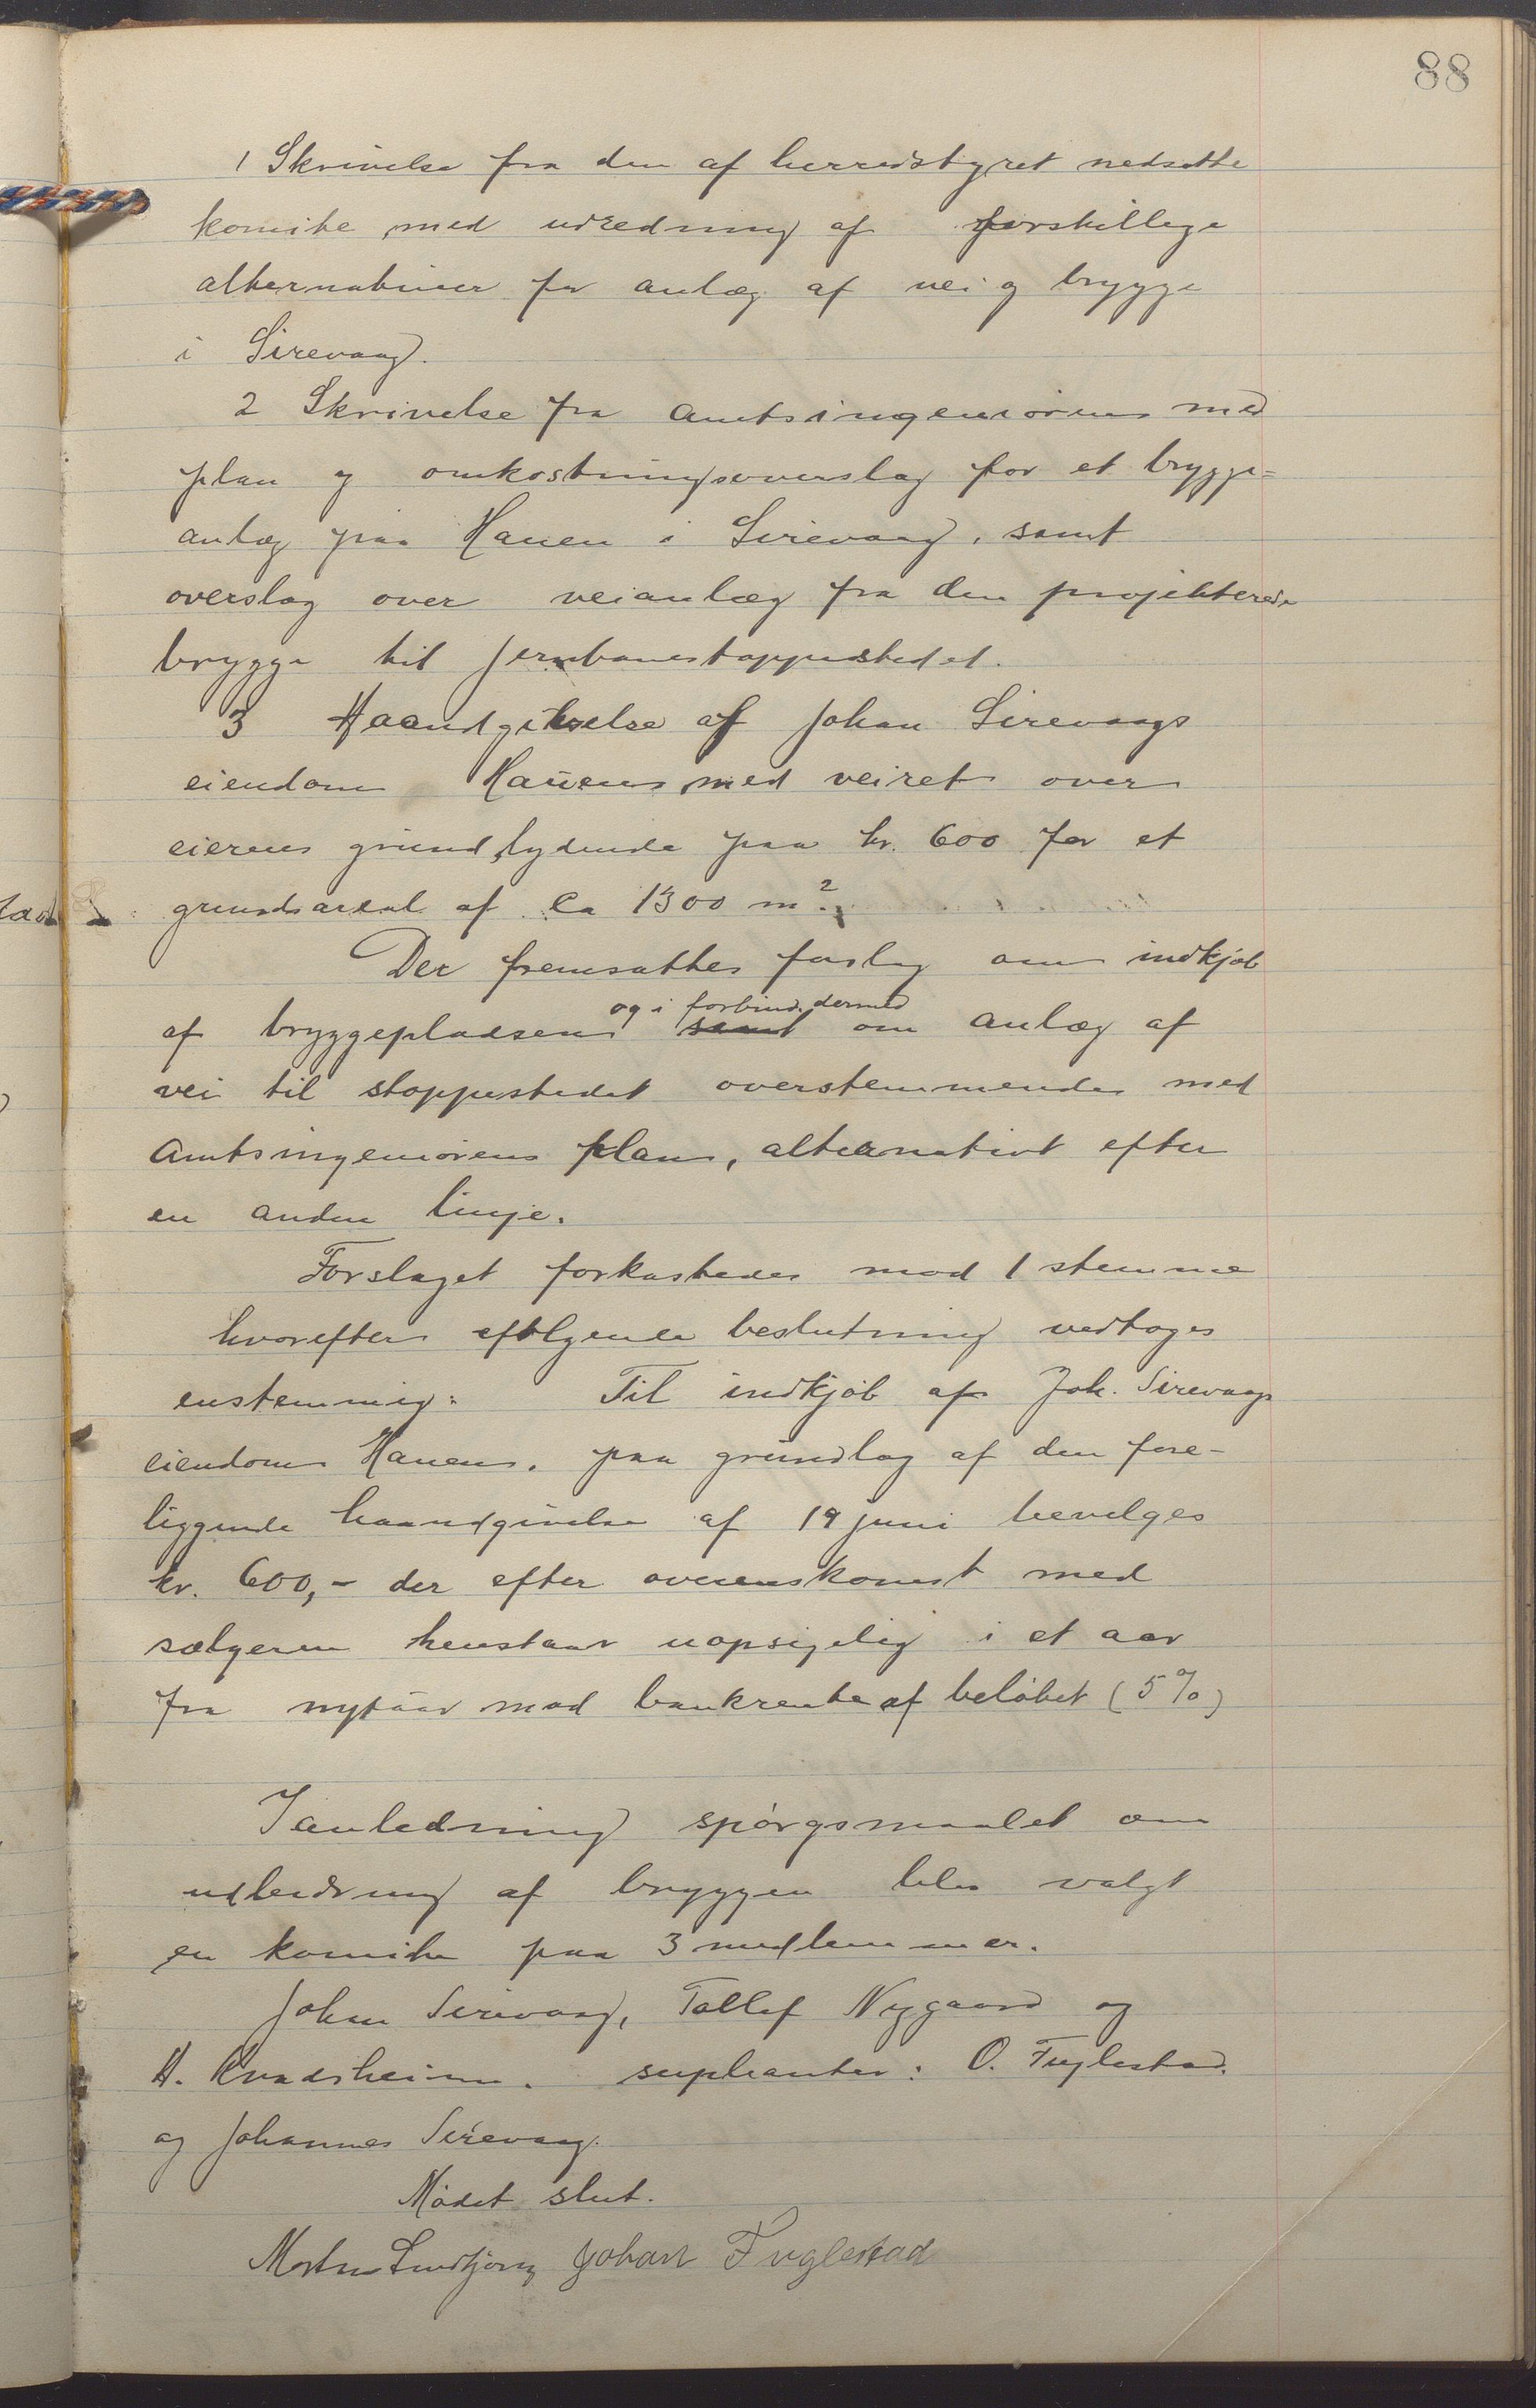 88
1 Skrivelse fra den af herredstyret nedsatte
komite med udredning af forskillige
alternativer for anlæg af vei og brygge
i Sirevaag.
2 Skrivelse fra Amtsingeniøren med
plan og omkostningsoverslag for et brygge-
anlæg paa Hauen i Sirevaag, samt
overslag over veianlæg fra den projekterede
brygge til jernbanestoppestedet.
3 Haandgivelse af Johan Sirevaags
eiendom Hauen med veiret over
eierens grund, lydende paa kr. 600 for et
grundareal af ca 1300 m².
Der fremsattes forslag om indkjøb
og i forbind. dermed
af bryggepladsen samt om anlæg af
vei til stoppestedet overstemmende med
Amtsingeniørens plan, alternativt efter
en anden linje.
Forslaget forkastedes mod 1 stemme
hvorefter følgende beslutning vedtoges
enstemmig: Til indkjøb af Joh. Sirevaags
eiendom Hauen. paa grundlag af den fore-
liggende haandgivelse af 19 juni bevilges
kr. 600,- der efter overenskomst med
sælgeren henstaar uopsigelig i et aar
fra nytaar mod bankrente af beløbet (5%)
I anledning spørgsmaalet om
udbedring af bryggen blev valgt
en komite paa 3 medlemmer.
Johan Sirevaag, Tollef Nygaard og
H. Kvadsheim. supleanter: O. Fuglestad.
og Johannes Sirevaag.
Mødet slut.
Morten Lindtjørn Johan Fuglestad